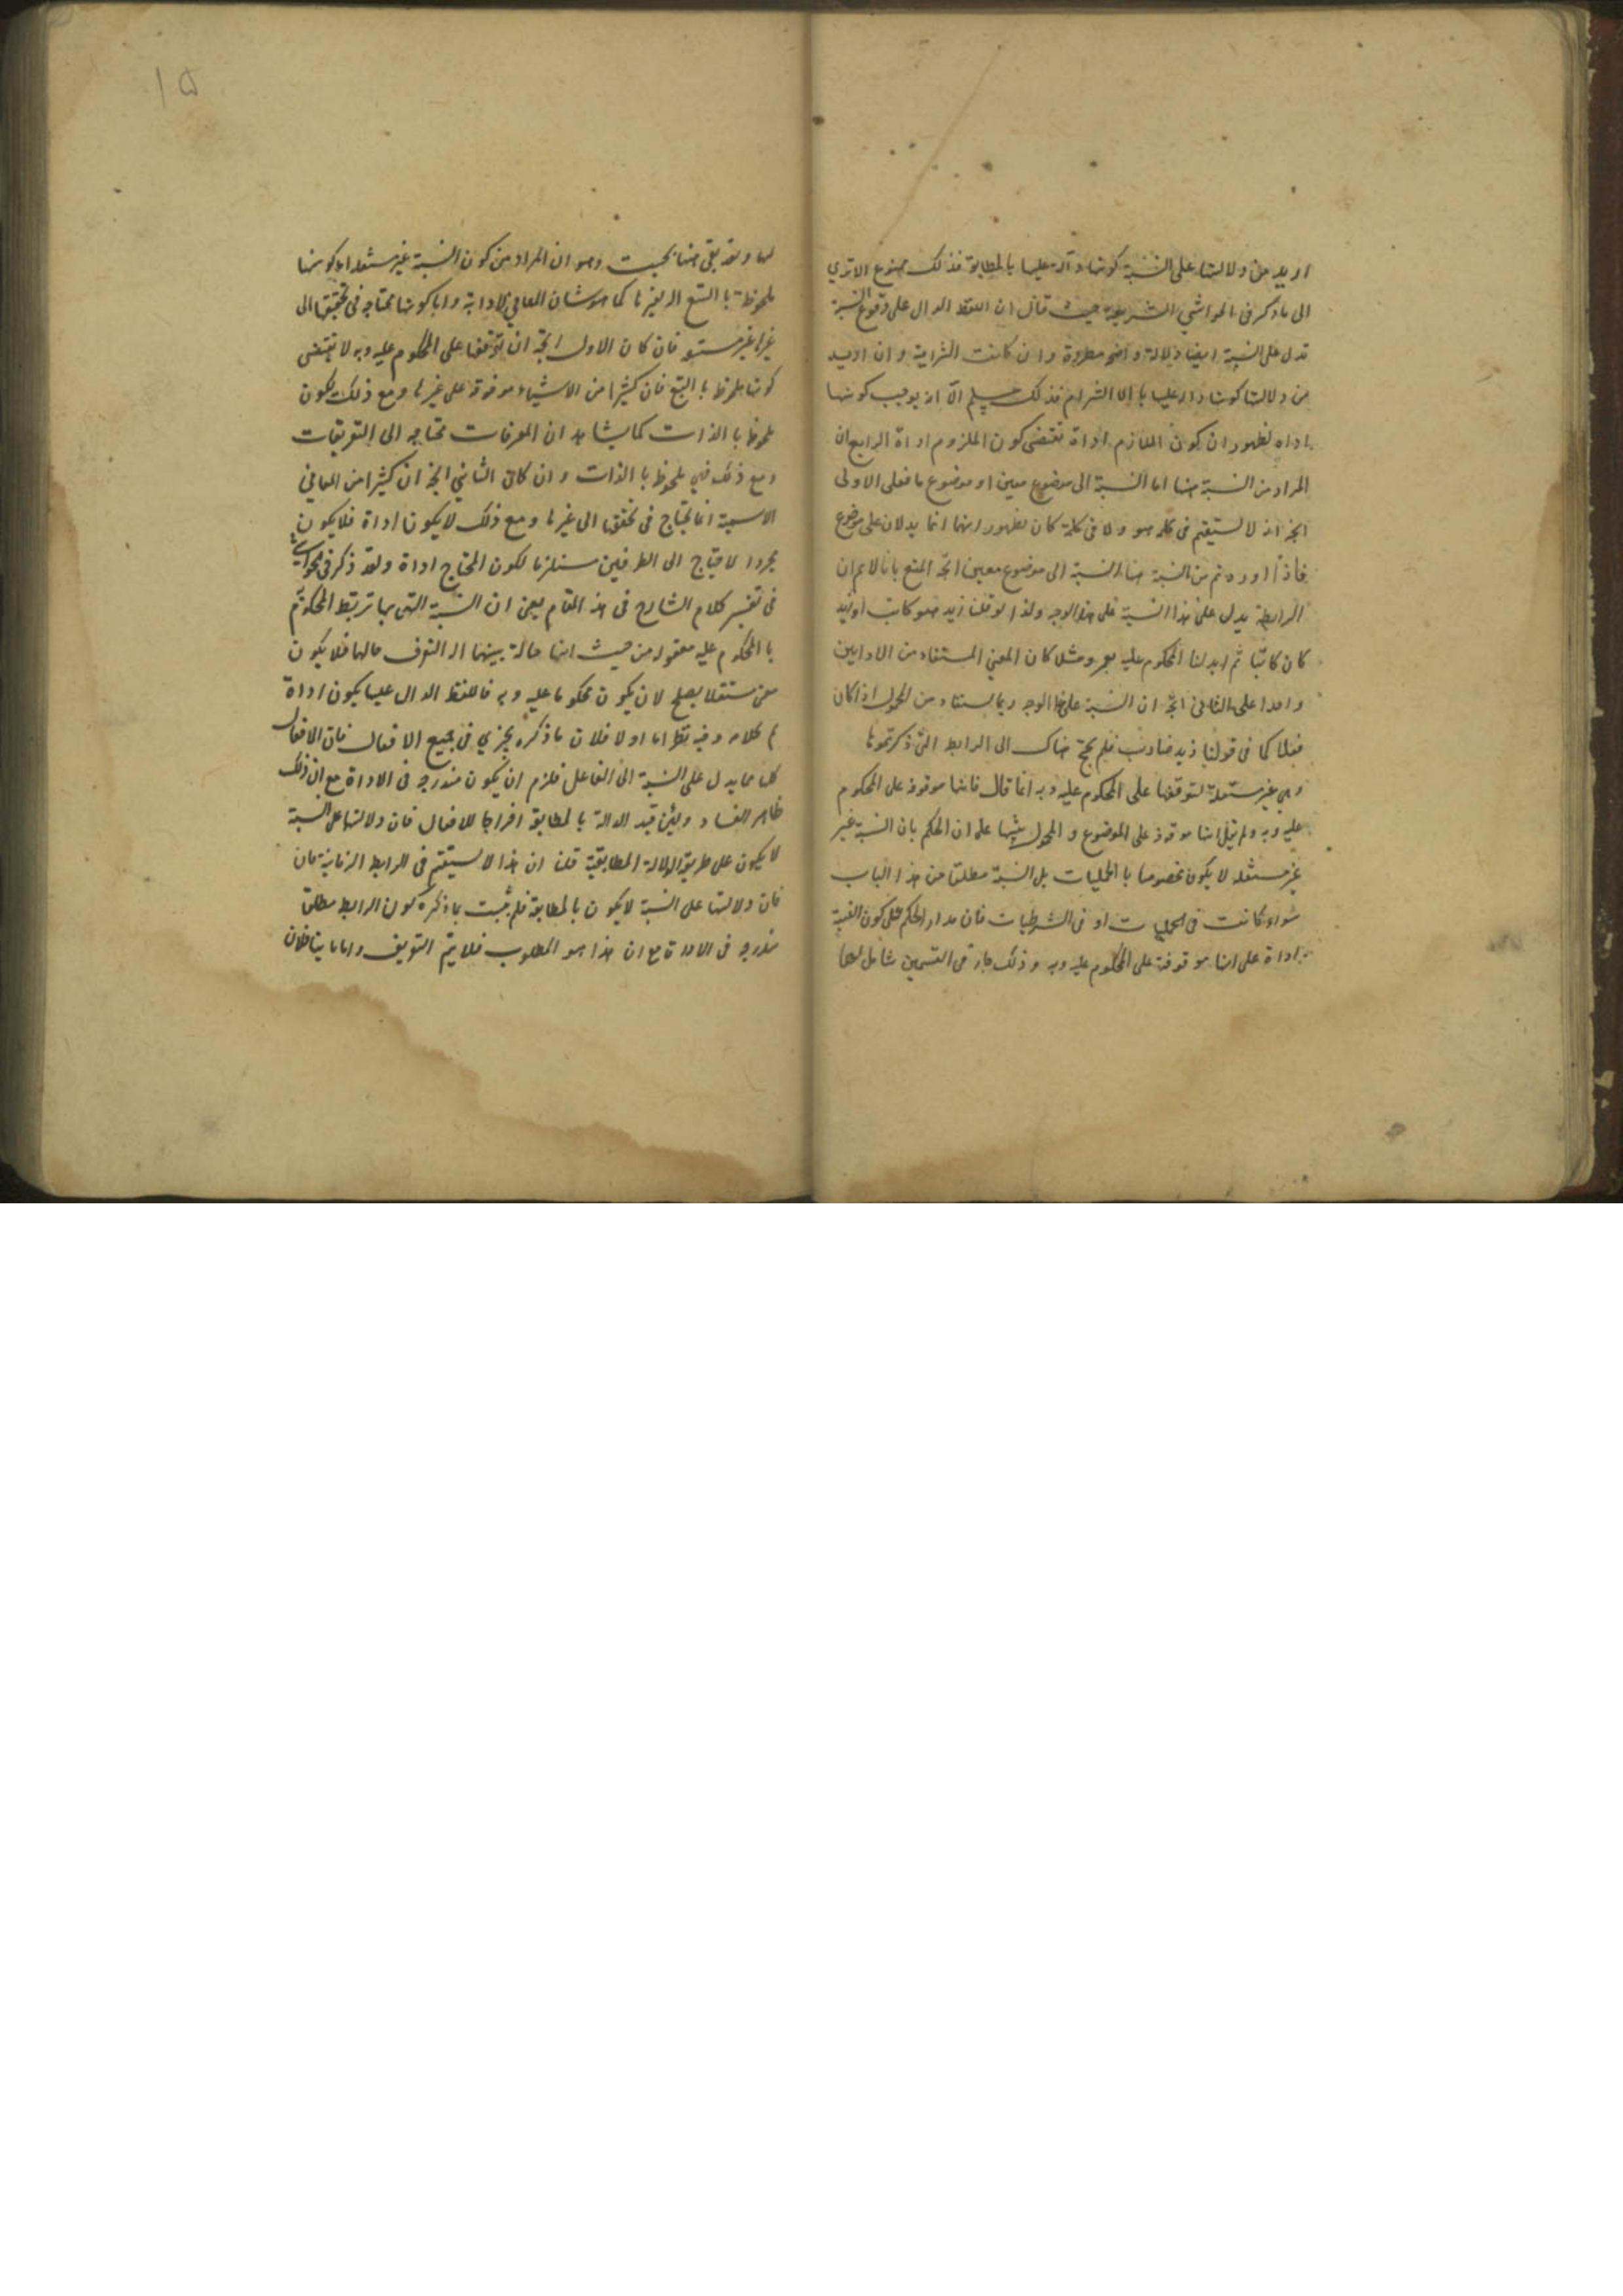 اريد من دلالتها على النسبة كونها دالة عليها بالمطابقة فذلك ممنوع الا ترى
الى ما ذكر فى الحواشي الشريفية حيث قال ان اللفظ الدال على وقوع النسبة
تدل على النسبة ايضا دلالة واضحة مطردة وان كانت التزامية وان اريد
من دلالتها كونها دالة عليها بالالتزام فذلك مسلم الا انه يوجب كونها
اداة لظهور ان كون اللازم اداة تقتضى كون الملزوم اداة الرابع ان
المراد من النسبة هنا اما النسبة الى موضوع معين او موضوع ما فعلى الاولى
اتجه انه لا يستقيم فى كلمة هو ولا فى كلمة كان لظهور انهما انما يدلان على موضوع
فاذا اوردتم من النسبة هنا النسبة الى موضوع معين اتجه المنع بانا لا نم ان
الرابطة يدل على هذا النسبة على هذا الوجه ولذا لو قلنا زيد هو كاتب او زيد
كان كاتبا ثم ابدلنا المحكوم عليه بعمرو مثلا كان المعنى المستفاد من الاداتين
واحدا على الثانى اتجه ان النسبة على هذا الوجه ربما يستفاد من المحمول اذا كان
فعلا كما فى قولنا زيد ضارب فلم يحتج هناك الى الرابط التى ذكرتموها
وهى غير مستقلة لتوقفها على المحكوم عليه وبه انما قال فانها موقوفة على المحكوم
عليه وبه ولم يقل انها موقوفة على الموضوع و المحمول تنبيها على ان الحكم بان النسبة غير
غير مستقلة لا يكون مخصوصا بالحمليات بل النسبة مطلقا من هذا الباب
سواء كانت فى الحمليات او فى الشرطيات فان مدار الحكم على كون النسبة
اداة على انها موقوفة على المحكوم عليه وبه وذلك جار فى القسمين شامل لهما
لهما وقد بقى هنا بحث وهو ان المراد من كون النسبة غير مستقلة اما كونها
ملحوظة بالتبع الى غيرها كما هو شان المعانى الاداتية واما كونها محتاجة فى تحققها الى
غيرها غير مستو فان كان الاول اتجه ان توقفها على المحكوم عليه وبه لا يقتضى
كونها ملحوظ بالتبع فان كثيرا من الاشياء موقوفة على غيرها ومع ذلك يكون
ملحوظا بالذات كما يشاهد ان المعرفات تحتاجه الى التعريفات
ومع ذلك فهى ملحوظ بالذات وان كان الثانى اتجه ان كثيرا من المعانى
الاسمية انما تحتاج فى تحققها الى غيرها ومع ذلك لا يكون اداة فلا يكون
مجرد الاحتياج الى الطرفين مستلزما لكون المحتاج اداة وقد ذكر فى الحواشى
فى تفسير كلام الشارح فى هذا المقام يعنى ان النسبة التى بها ترتبط المحكوم به
بالمحكوم عليه معقولة من حيث انها حالة بينهما الة لتعرف حالهما فلا يكون
معنى مستقلا يصلح لان يكون محكوما عليه وبه فاللفظ الدال عليها يكون اداة
تم كلامه وفيه نظر اما اولا فلان ما ذكره يجرى فى جميع الافعال فان الافعال
كلها مما يدل على النسبة الى الفاعل فلزم ان يكون مندرجة فى الاداة مع ان ذلك
ظاهر الفساد ولئن قيد الدالة بالمطابقة اخراجا للافعال فان دلالتها على النسبة
لا يكون على طريق الدلالة المطابقية قلنا ان هذا لا يستقيم فى الرابط الزمانية فان
فان دلالتها على النسبة لا يكون بالمطابقة فلم يثبت بما ذكره كون الرابط مطلقا
مندرجة فى الاداة مع ان هذا هو المطلوب فلا يتم التعريف واما ثانيا فلان